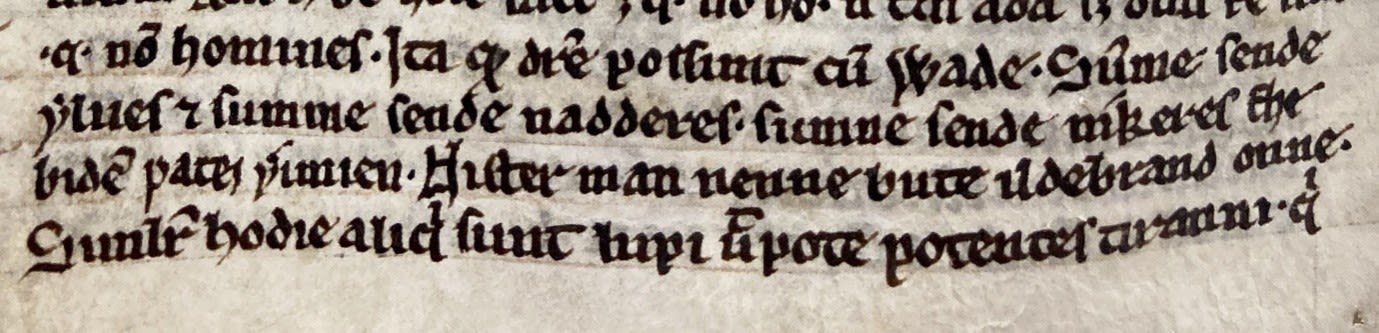 ·q· nō homines· Ita ꝙ dr̄e possunt cū Wade· Sūme sende
ẏlues ⁊ summe sende nadderes· sumne sende nikeres the
bidē pateȝ ƿimien· Nister man nenne bute ildebrand onne·
Similr̄ hodie aliqͥ sunt lupi ūpote potentes tiranni· qͥ